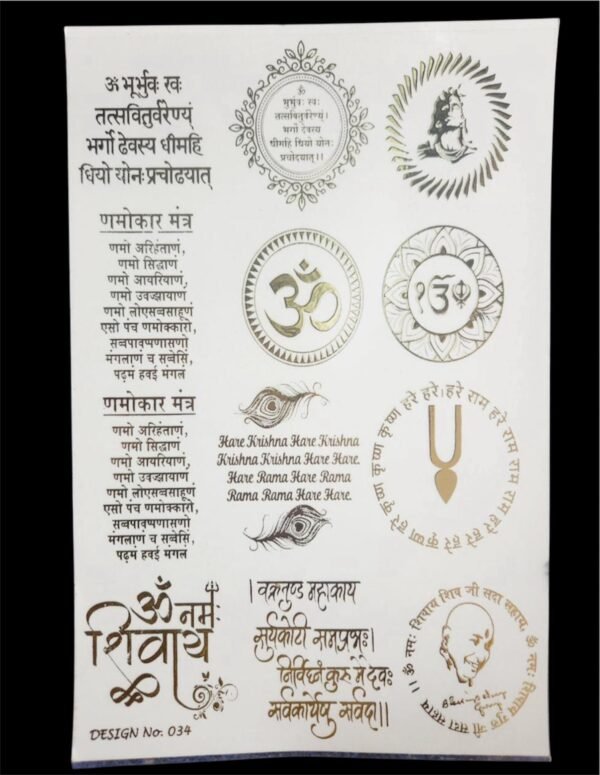 ॐ भूर्भुवः स्वः
तत्सवितुर्वरेण्यं
भर्गो देवस्य धीमहि
धियो योनःप्रचोदयात्
ॐ
भूर्भुवः स्वः
तत्सवितुर्वरेण्यं।
भर्गो देवस्य
धीमहि धियो योनः
प्रचोदयात्।।
णमोकार मंत्र
णमो अरिहंताणं,
णमो सिद्धाणं
णमो आयरियाणं,
णमो उवज्झायाणं
णमो लोएसव्वसाहूणं
एसो पंच णमोक्कारो,
सव्वपावप्पणासणो
मंगलाणं च सव्वेसिं,
पढ़मं हवई मंगलं
ॐ
੧ੴ
णमोकार मंत्र
णमो अरिहंताणं,
णमो सिद्धाणं
णमो आयरियाणं,
णमो उवज्झायाणं
णमो लोएसव्वसाहूणं
एसो पंच णमोक्कारो,
सव्वपावप्पणासणो
मंगलाणं च सव्वेसिं,
पढ़मं हवई मंगलं
Hare Krishna Hare Krishna
Krishna Krishna Hare Hare.
Hare Rama Hare Rama
Rama Rama Hare Hare.
हरे कृष्ण हरे कृष्ण कृष्ण कृष्ण हरे हरे। हरे राम हरे राम राम राम हरे हरे
ॐ नमः
शिवाय
। वक्रतुण्ड महाकाय
सुर्यकोटी समप्रभः।
निर्विघ्नं कुरु मे देवः
सर्वकार्येषु सर्वदा।।
।। ॐ नमः शिवाय शिव जी सदा सहाय, ॐ नमः शिवाय गुरु जी सदा सहाय ।।
DESIGN No. 034